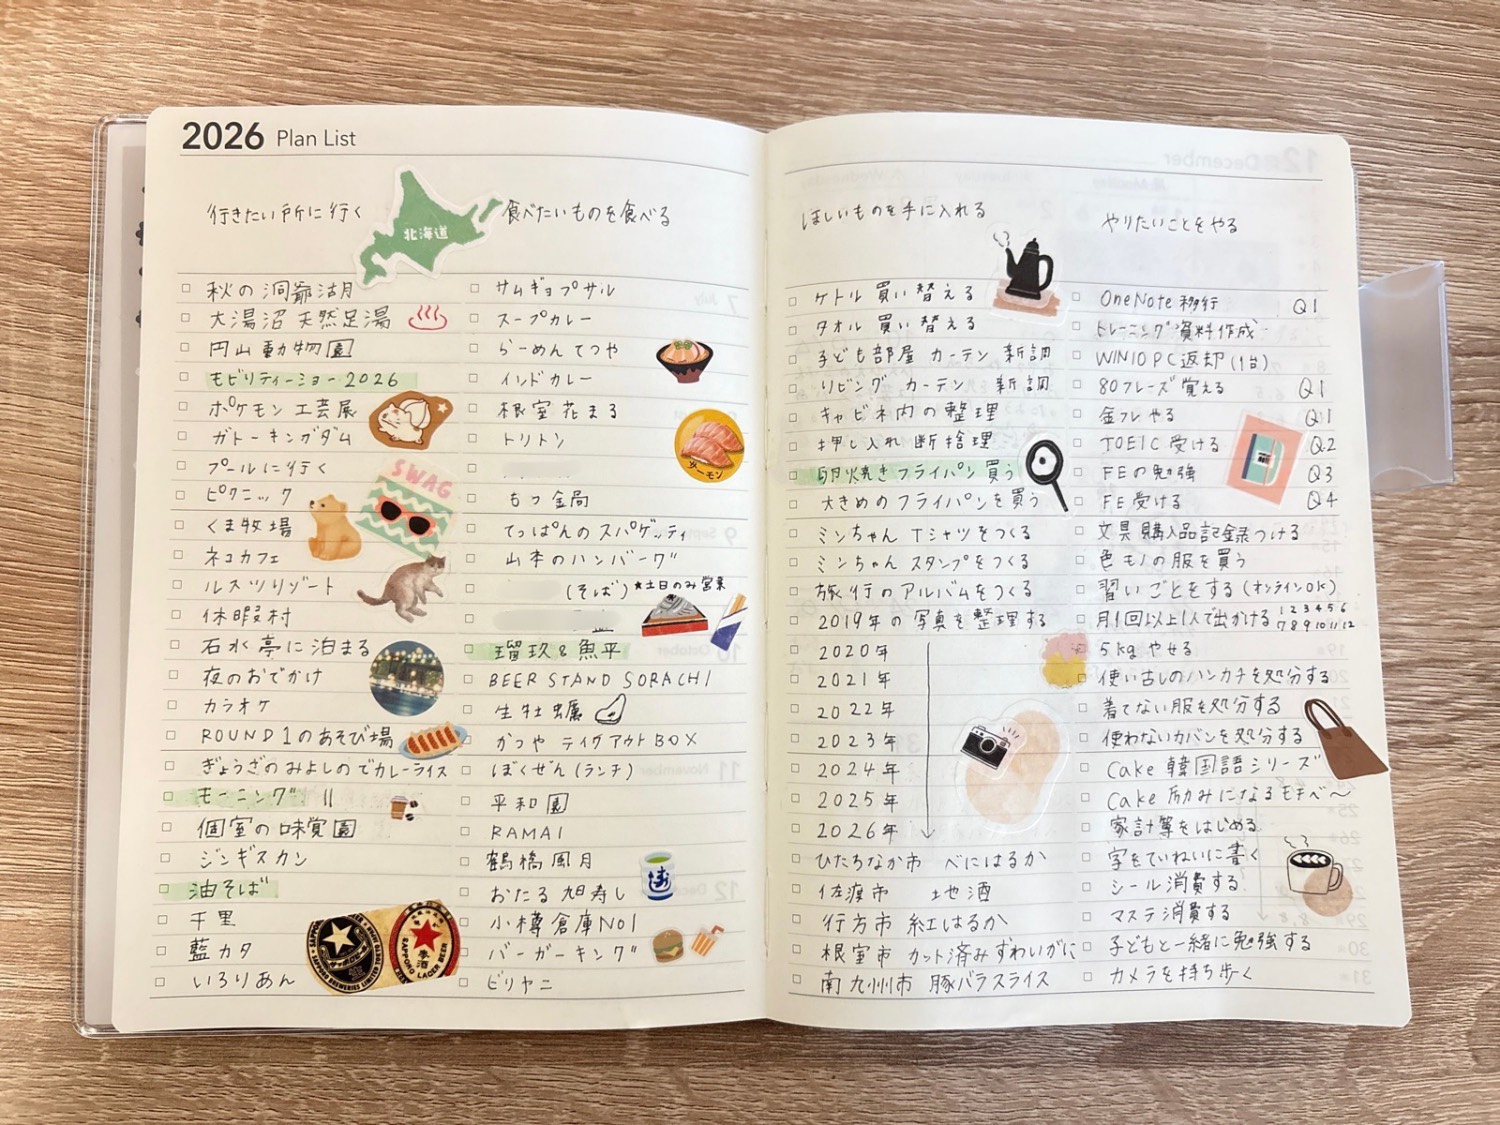 2026 Plan List
行きたい所に行く
北海道
秋の洞爺湖
大湯沼 天然足湯
円山動物園
モビリティーショー2026
ポケモン工芸展
ガトーキングダム
プールに行く
ピクニック
SWAG
くま牧場
ネコカフェ
ルスツリゾート
休暇村
石水亭に泊まる
夜のおでかけ
カラオケ
ROUND1のあそび場
ぎょうざのみよしのでカレーライス
モーニング 〃
個室の味覚園
ジンギスカン
油そば
千里
藍カタ
いろりあん
食べたいものを食べる
サムギョプサル
スープカレー
らーめんてつや
インドカレー
根室花まる
トリトン
サーモン
もつ金局
てっぱんのスパゲッティ
山本のハンバーグ
(そば)★土日のみ営業
瑠玖&魚平
BEER STAND SORACHI
生牡蠣
かつや テイクアウトBOX
ぼくぜん(ランチ)
平和園
RAMAI
鶴橋風月
おたる旭寿し
小樽倉庫NO1
バーガーキング
ビリヤニ
SAPPORO LAGER BEER
ほしいものを手に入れる
ケトル 買い替える
タオル 買い替える
子ども部屋 カーテン 新調
リビング カーテン 新調
キャビネ内の整理
押し入れ断捨離
卵焼きフライパン買う
大きめのフライパンを買う
ミンちゃん Tシャツをつくる
ミンちゃん スタンプをつくる
旅行のアルバムをつくる
2019年の写真を整理する
2020年
2021年
2022年
2023年
2024年
2025年
2026年
ひたちなか市 べにはるか
佐渡市 地酒
行方市 紅はるか
根室市 カット済みずわいがに
南九州市 豚バラスライス
やりたいことをやる
OneNote移行 Q1
トレーニング資料作成
WIN10PC返却(1台)
80フレーズ覚える Q1
金フレやる Q1
TOEIC受ける Q2
FEの勉強 Q3
FE受ける Q4
文具購入品記録つける
色モノの服を買う
習いごとをする(オンラインOK)
月1回以上1人で出かける 1 2 3 4 5 6 7 8 9 10 11 12
5kgやせる
使い古しのハンカチを処分する
着てない服を処分する
使わないカバンを処分する
Cake 韓国語シリーズ
Cake 励みになるモチベ〜
家計簿をはじめる
字をていねいに書く
シール消費する
マステ消費する
子どもと一緒に勉強する
カメラを持ち歩く